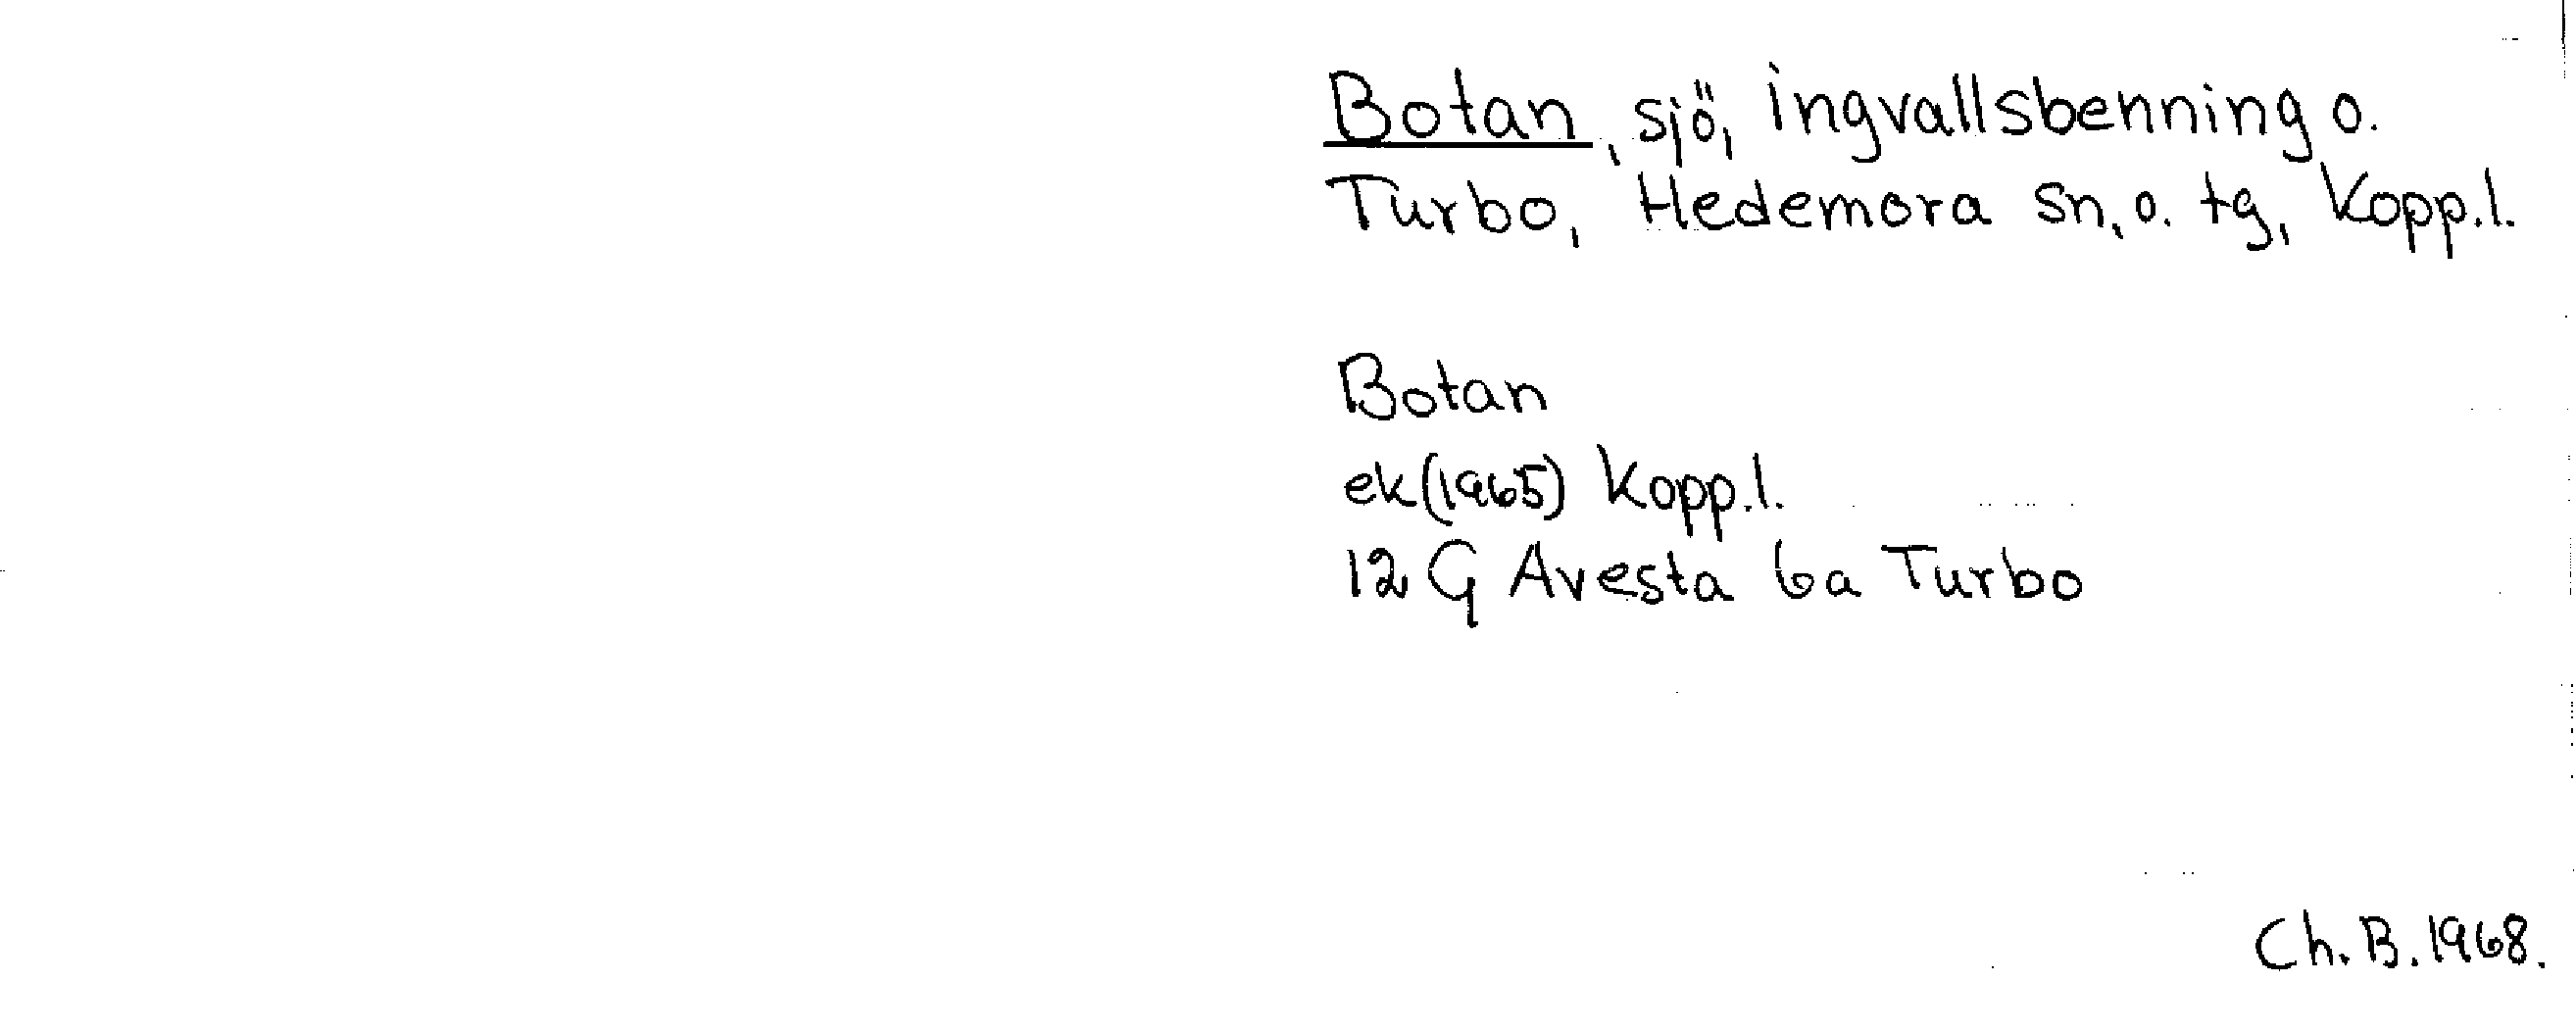 Botan, sjö, Ingvallsbenning o.
Turbo, Hedemora sn, o. tg, Kopp.l.
Botan
ek (1965) Kopp.l.
12 G Avesta 6a Turbo
Ch. B. 1968.